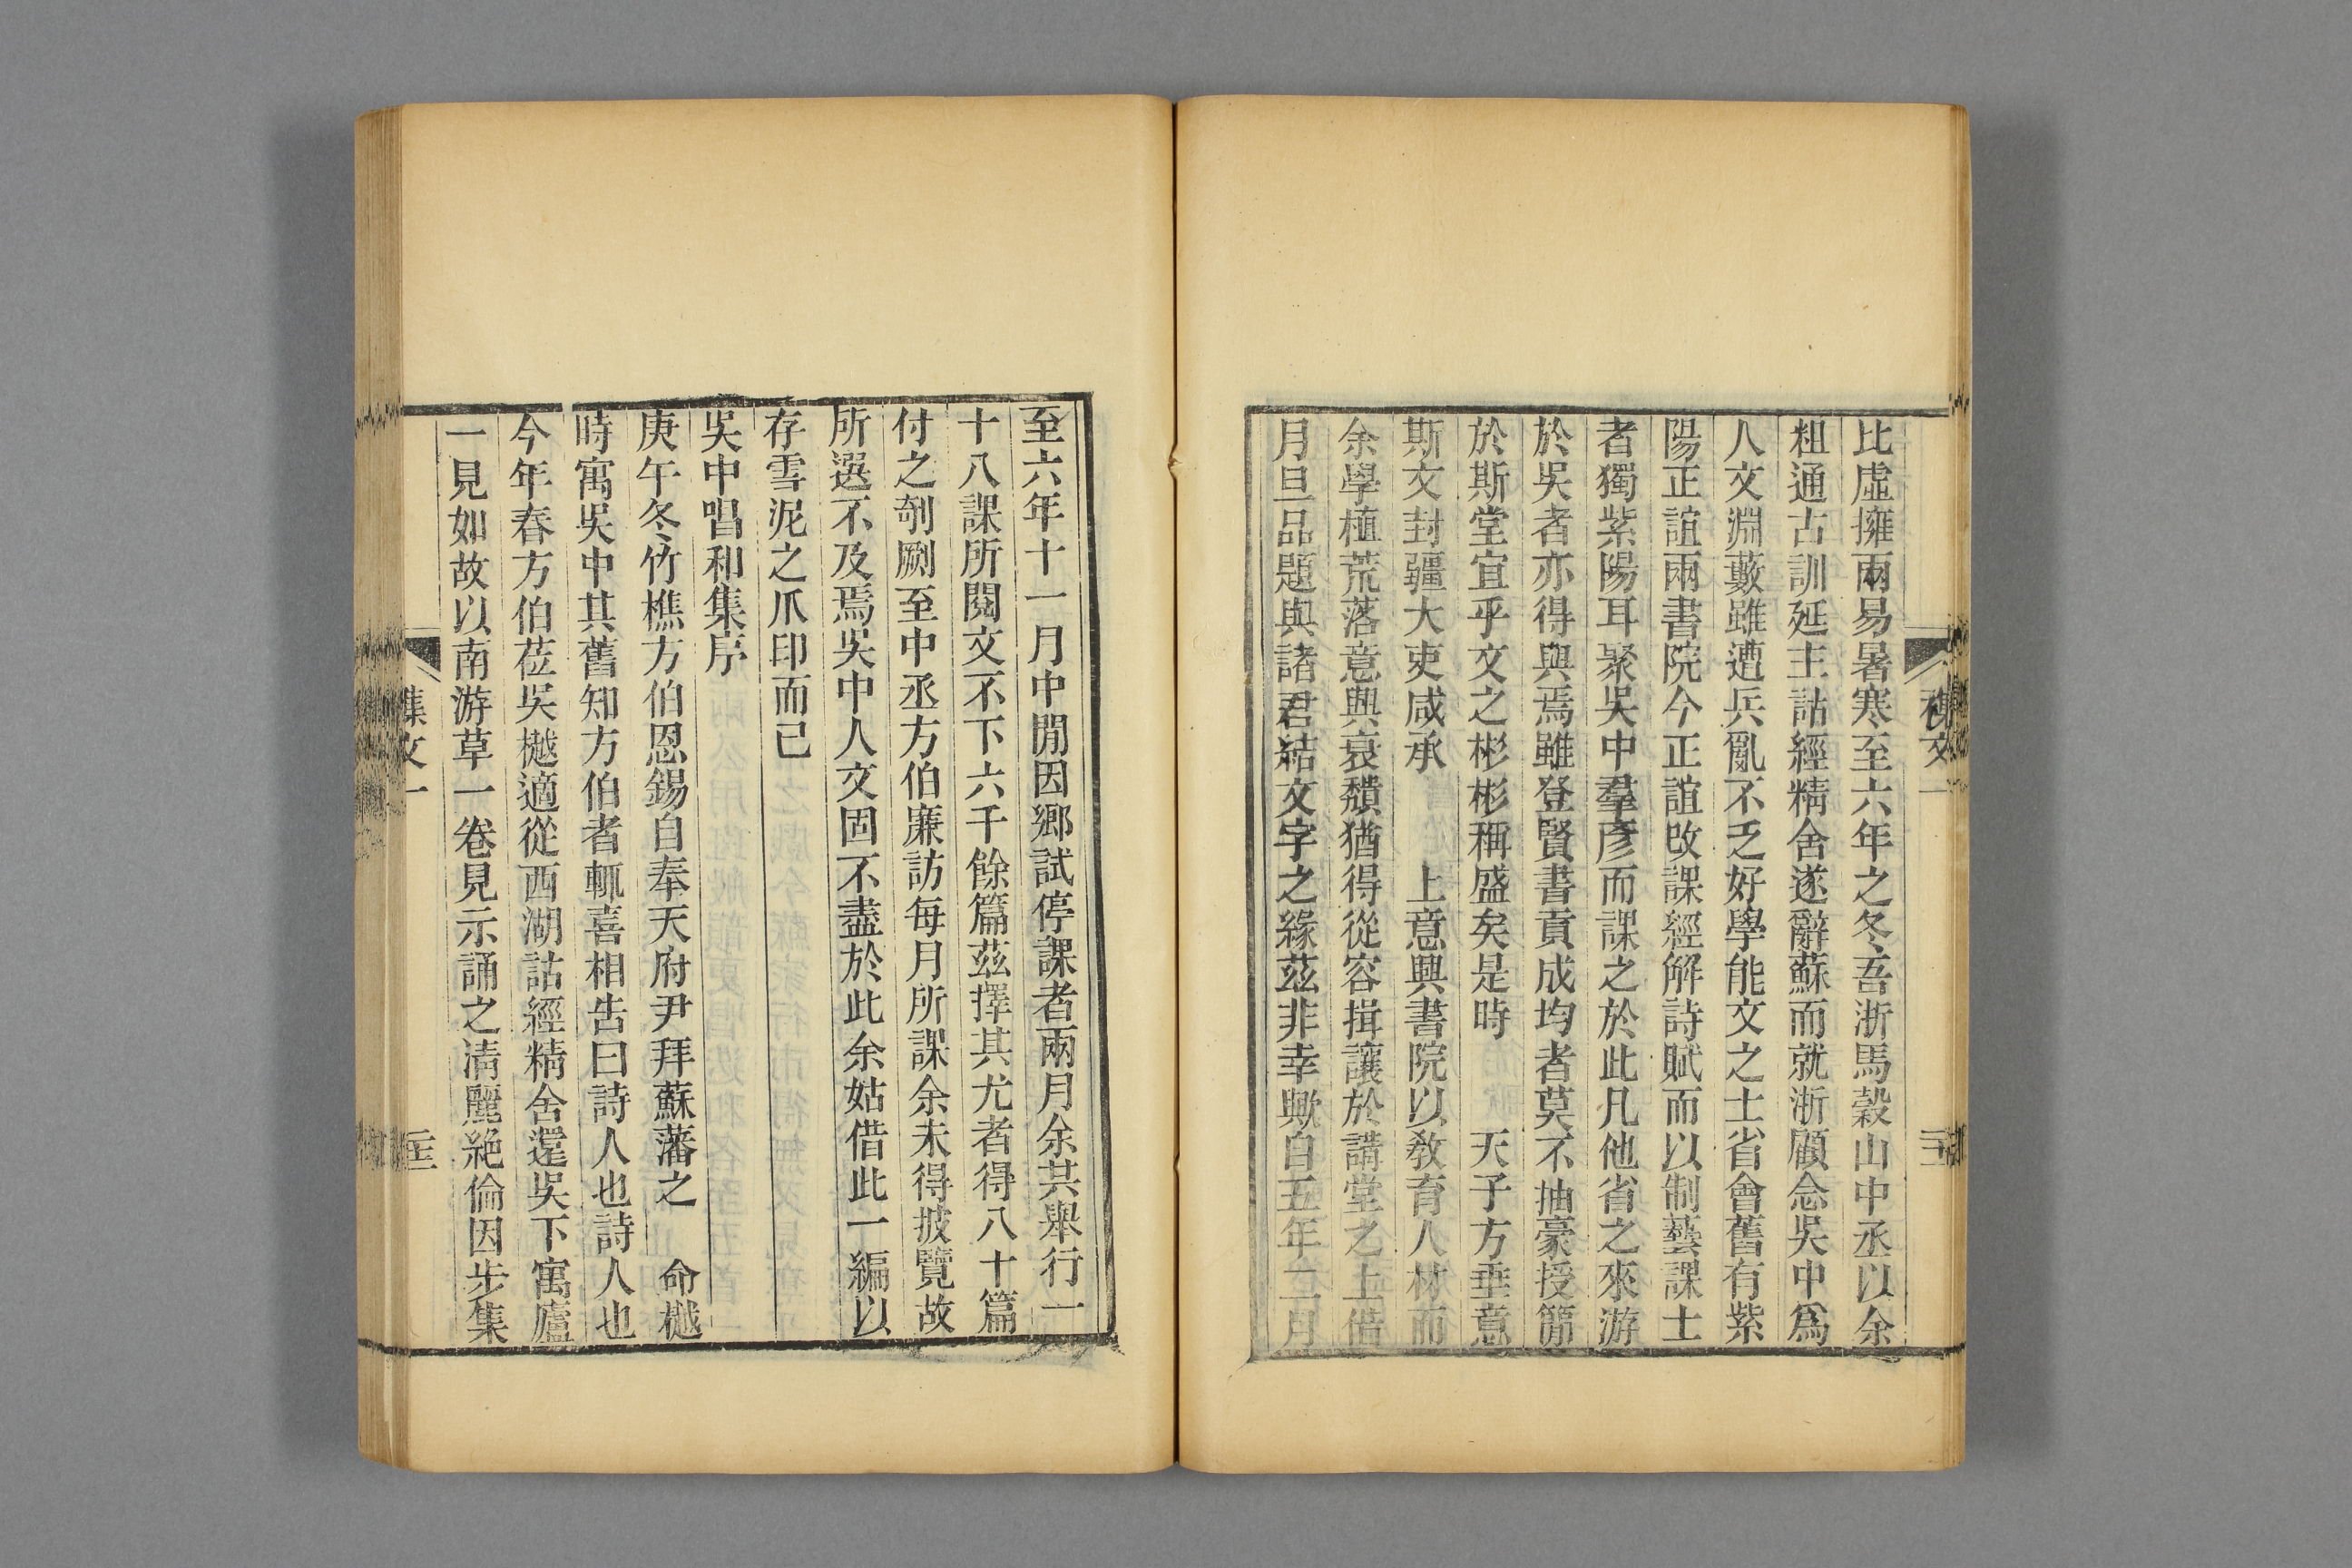 比虛擁兩易暑寒至六年之冬吾浙馬穀山中丞以余
粗通古訓延主詁經精舍遂辭蘇而就浙顧念吳中爲
人文淵藪雖遭兵亂不乏好學能文之士省會舊有紫
陽正誼兩書院今正誼改課經解詩賦而以制藝課士
者獨紫陽耳聚吳中羣彥而課之於此凡他省之來游
於吳者亦得與焉雖登賢書貢成均者莫不抽豪授簡
於斯堂宜乎文之彬彬稱盛矣是時　　天子方垂意
斯文封疆大吏咸承　　上意興書院以敎育人材而
余學植荒落意興衰穨猶得從容揖讓於講堂之上借
月旦品題與諸君結文字之緣茲非幸歟自五年二月
至六年十一月中閒因鄉試停課者兩月余共舉行一
十八課所閱文不下六千餘篇茲擇其尤者得八十篇
付之剞劂至中丞方伯廉訪每月所課余未得披覽故
所選不及焉吳中人文固不盡於此余姑借此一編以
存雪泥之爪印而已
吳中唱和集序
庚午冬竹樵方伯恩錫自奉天府尹拜蘇藩之　命樾
時寓吳中其舊知方伯者輒喜相告曰詩人也詩人也
今年春方伯莅吳樾適從西湖詁經精舍還吳下寓廬
一見如故以南游草一卷見示誦之清麗絶倫因步集
集文一